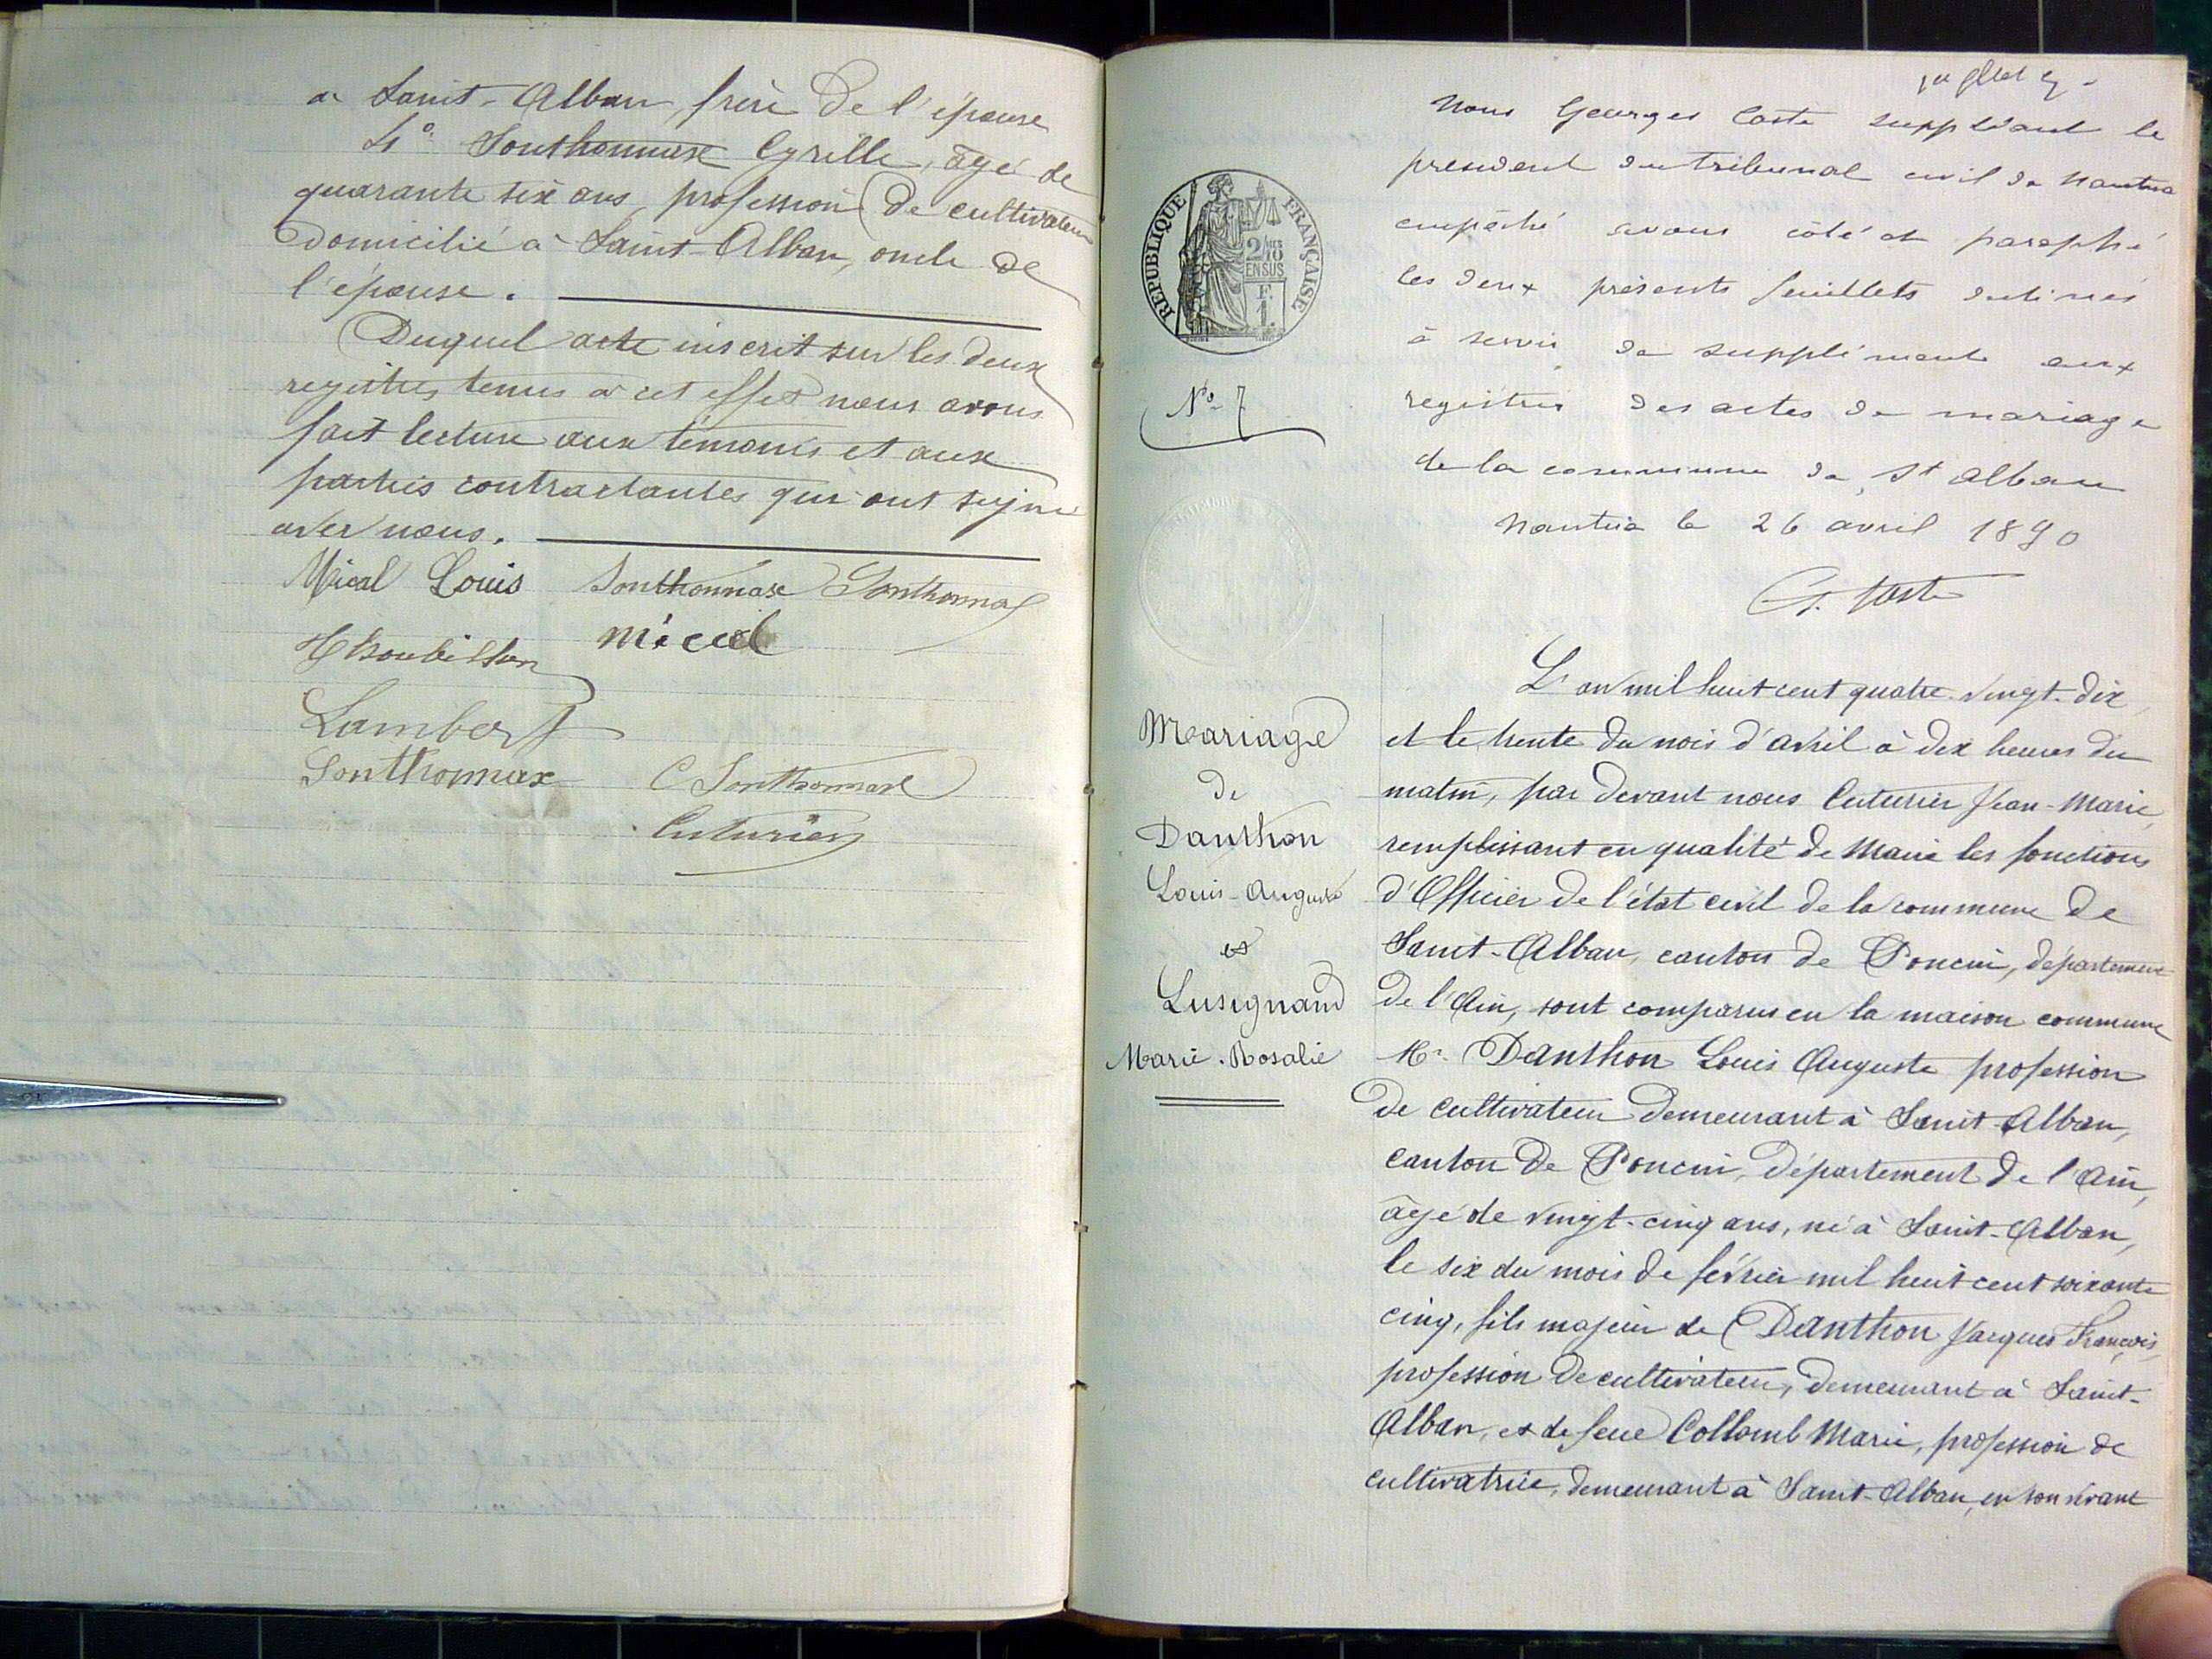 à Saint-Alban, frère de l'épouse
4° Sonthonnax Cyrille, âgé de
quarante six ans, profession de cultivateur
domicilié à Saint-Alban, oncle de
l'épouse.
Duquel acte inscrit sur les deux
registres tenus à cet effet nous avons
fait lecture aux témoins et aux
parties contractantes qui ont signé
avec nous.
Micol Louis Sonthonnax Sonthonnax
Micol
Lambert
Sonthonnax C Sonthonnax
Cuturier
Nous Georges Coste suppléant le
président du tribunal civil de Nantua
empêché avons côté et paraphé
les deux présents feuillets destinés
à servir de supplément aux
registres des actes de mariage
de la commune de St Alban
Nantua le 26 avril 1890
G. Coste
REPUBLIQUE FRANÇAISE
2/10 EN SUS
F.
1.
N° 7
Mariage
de
Danthon
Louis-Auguste
et
Lusignand
Marie-Rosalie
L'an mil huit cent quatre-vingt-dix
et le trente du mois d'avril à dix heures du
matin, par devant nous Cuturier Jean-Marie,
remplissant en qualité de Maire les fonctions
d'Officier de l'état civil de la commune de
Saint-Alban, canton de Poncin, département
de l'Ain, sont comparus en la maison commune
Mr Danthon Louis Auguste profession
de cultivateur demeurant à Saint-Alban,
canton de Poncin, département de l'Ain,
âgé de vingt-cinq ans, né à Saint-Alban,
le six du mois de février mil huit cent soixante
cinq, fils majeur de Danthon Jacques François,
profession de cultivateur, demeurant à Saint-
Alban, et de feue Collomb Marie, profession de
cultivatrice, demeurant à Saint-Alban, en son vivant